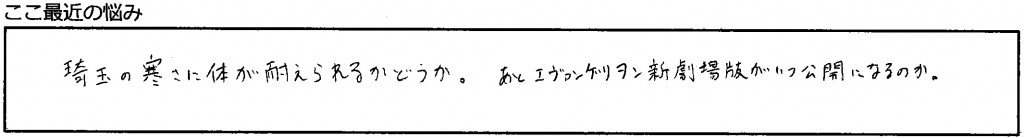 ここ最近の悩み
埼玉の寒さに体が耐えられるかどうか。 あとエヴァンゲリヲン新劇場版がいつ公開になるのか。